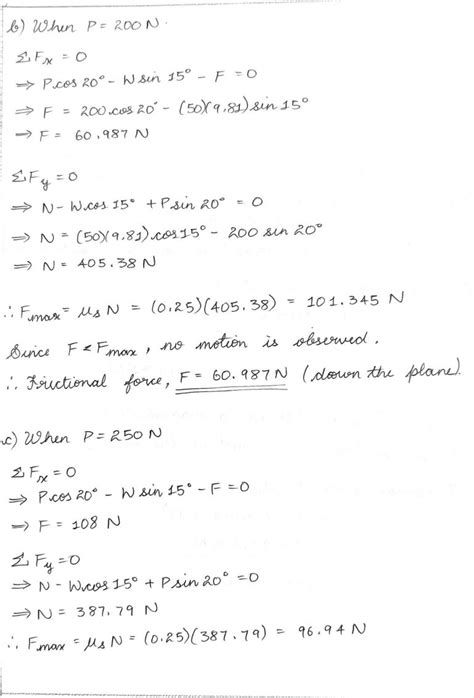 b) When P = 200 N.
ΣFx = 0
⇒ P.cos 20° - W sin 15° - F = 0
⇒ F = 200.cos 20° - (50)(9.81) sin 15°
⇒ F = 60.987 N
ΣFy = 0
⇒ N - W.cos 15° + P sin 20° = 0
⇒ N = (50)(9.81).cos 15° - 200 sin 20°
⇒ N = 405.38 N
∴ Fmax = μs N = (0.25)(405.38) = 101.345 N
Since F < Fmax, no motion is observed.
∴ Frictional force, F = 60.987 N (down the plane).
c) When P = 250 N
ΣFx = 0
⇒ P.cos 20° - W sin 15° - F = 0
⇒ F = 108 N
ΣFy = 0
⇒ N - W.cos 15° + P sin 20° = 0
⇒ N = 387.79 N
∴ Fmax = μs N = (0.25)(387.79) = 96.94 N